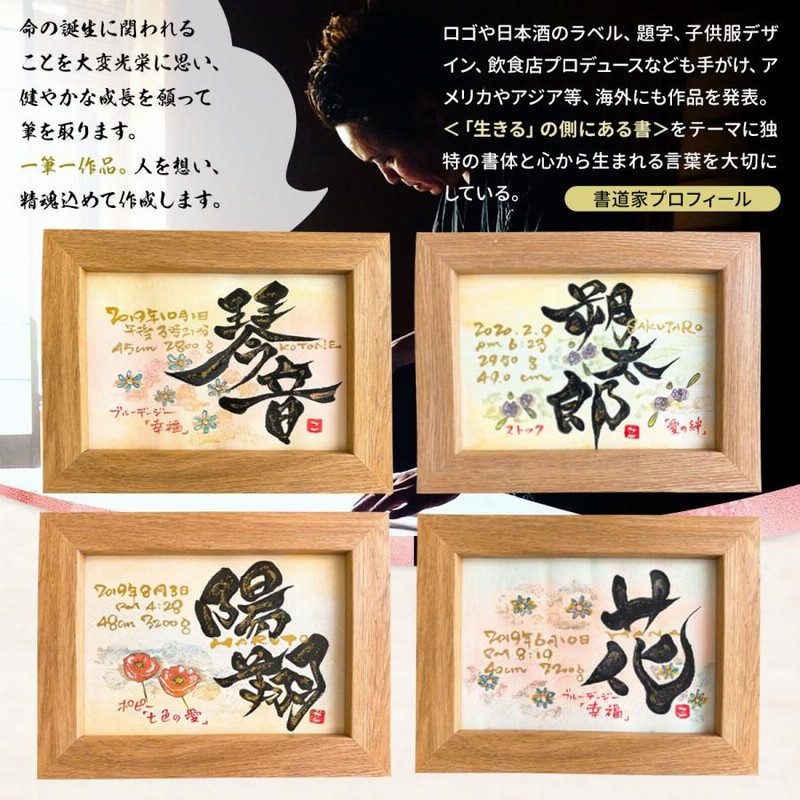 命の誕生に関われる
ことを大変光栄に思い、
健やかな成長を願って
筆を取ります。
一筆一作品。人を想い、
精魂込めて作成します。
ロゴや日本酒のラベル、題字、子供服デザ
イン、飲食店プロデュースなども手がけ、ア
メリカやアジア等、海外にも作品を発表。
＜「生きる」の側にある書＞をテーマに独
特の書体と心から生まれる言葉を大切に
している。
書道家プロフィール
2019年10月1日
午後3時21分
45cm 2800g
琴音
KOTONE
ブルーデージー
「幸福」
2020.2.9
pm 6:23
2950g
49.0cm
朔太郎
SAKUTARO
ストック
「愛の絆」
2019年8月3日
pm 4:28
48cm 3200g
陽翔
HARUTO
ポピー
「七色の愛」
2019年6月10日
PM 8:19
40cm 3200g
花
HANA
ブルーデージー
「幸福」